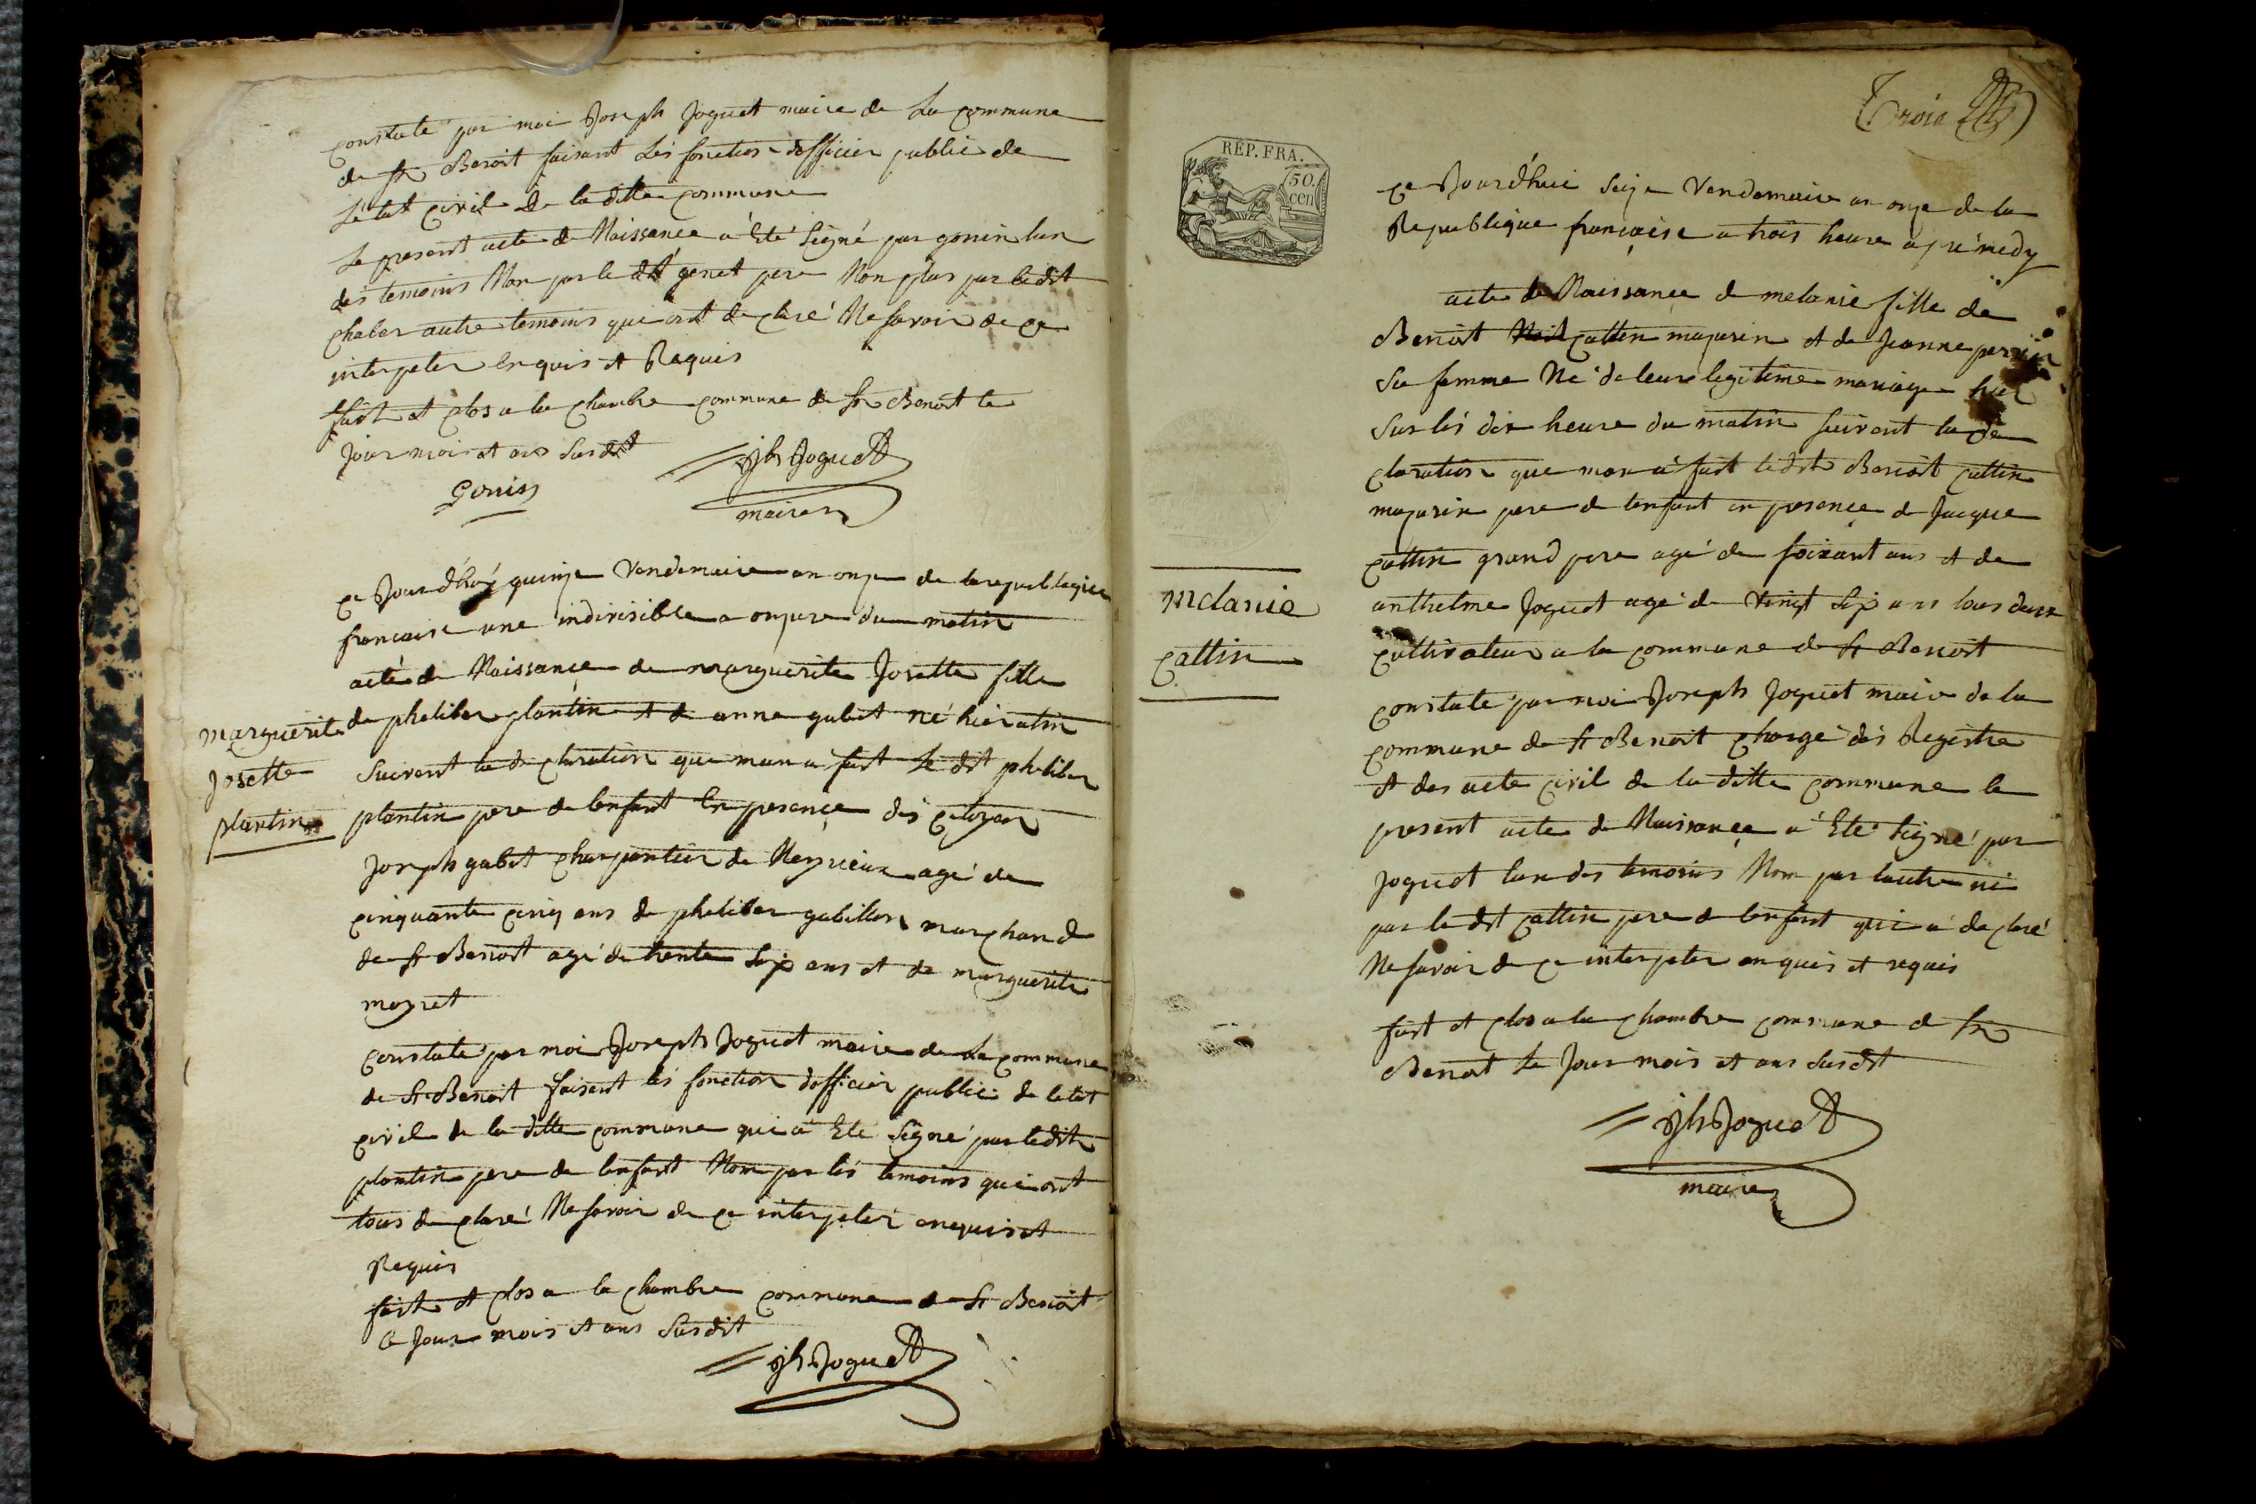 constaté par moi Joseph Joguet maire de La commune
de St Benoit faisant Les fonction dofficier public de
Létat civil De la ditte commune
Le present acte de Naissance a Eté Signé par gonin lun
des temoins Non par le dit genet pere Non plus par ledit
chaber autre temoins qui ont de claré Ne savoir de ce
interpeler En quis et Requis
fait et clos a la chambre commune de St Benoit le
Jour mois et ans Susdit
jh Joguet
Gonin
maire
ce Jour d'huy quinze Vendemaire an onze de la republique
francaise une indivisible a onzure du matin
acte de Naissance de marguerite Josette fille
de pheliber plantin et de anne gubet né hier
Suivant la de claration que man a fait Le dit pheliber
plantin pere de lenfant En presence des citoyen
Joseph gubet charpentier de agé de
cinquante cinq ans de pheliber gubillon marchand
de St Benoit agé de trente Six ans et de marguerite
moyret
constaté par moi Joseph Joguet maire de La commune
de St Benoit faisant les fonction dofficier public de letat
civil de la ditte commune qui a Eté Signé par ledit
plantin pere de lenfant Non par les temoins qui ont
tous de claré Ne savoir de ce interpeler enquis et
Requis
fait et clos a la chambre commune de St Benoit
Le Jour mois et ans Susdit
jh Joguet
marguerite
Josette
plantin
Trois
REP. FRA.
50.
cen
ce Jourd'hui Seize Vendemaire an onze de la
Republique francaise a trois heure aprémedy
acte de Naissance de melanie fille de
Benoit cattin mazurin et de Jeanne perrin
Sa femme Né de leure legitime mariage hier
Sur lés dix heure du matin suivant la dé
claration que man a fait ledit Benoit cattin
mazurin pere de lenfant en presence de Jacque
cattin grand pere agé de soixant ans et de
anthelme Joguet agé de vingt Six ans tous deux
cultivateur a la commune de St Benoit
constaté par moi Joseph Joguet maire de la
commune de St Benoit chargé dés Registre
et des acte civil de la ditte commune le
present acte de Naissance a Eté Signé par
Joguet lun des temoins Non par lautre ni
par le dit cattin pere de lenfant qui a de claré
Ne savoir de ce interpeler en quis et requis
fait et clos a la chambre commune de St
Benoit Le Jour mois et ans Susdit
jh Joguet
maire
Melanie
cattin